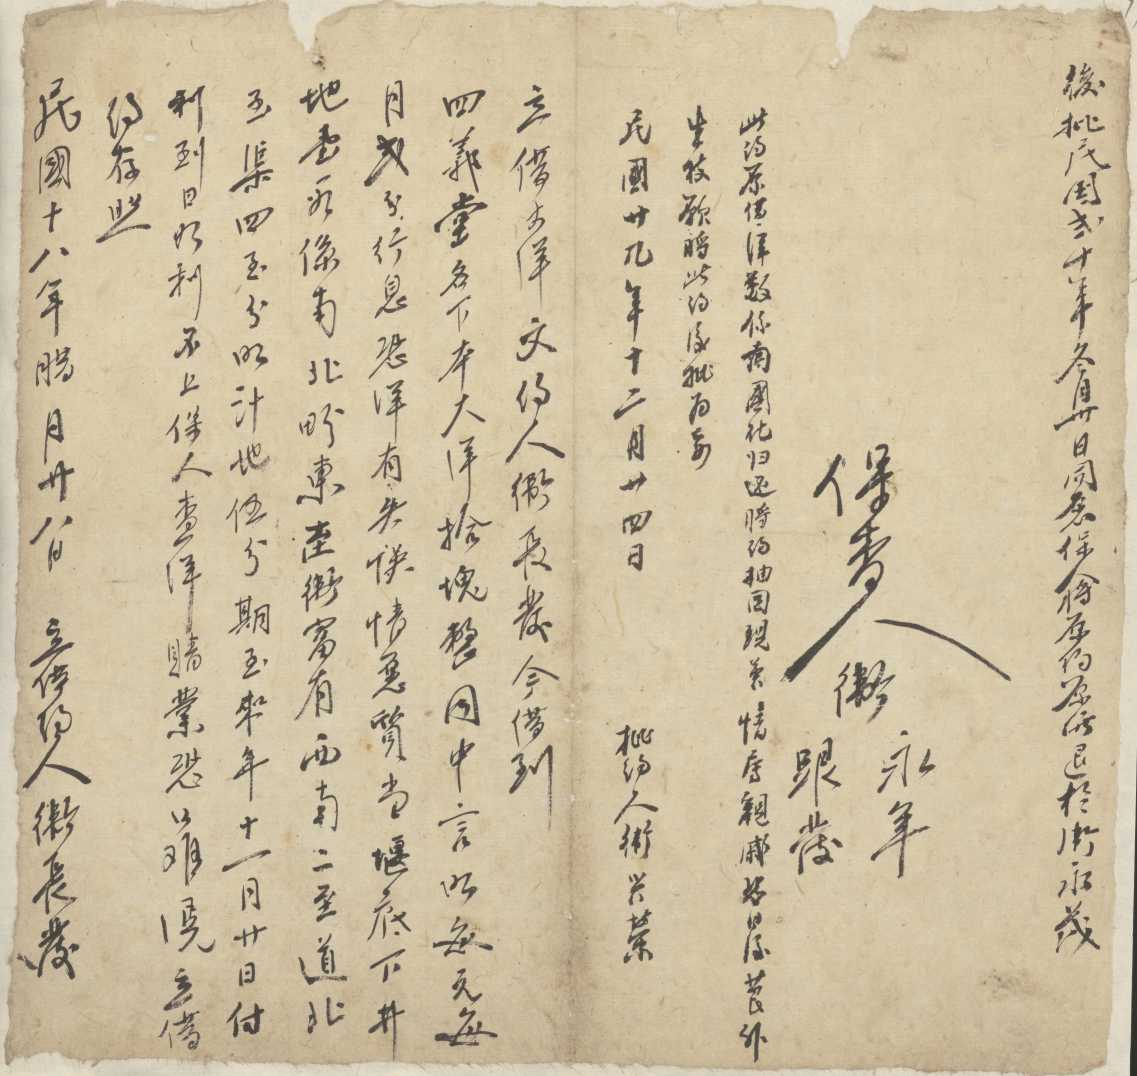 後批民國弍十年冬月廿日同原保人將原約原洋退於衛永茂
保查人 衛 永年
跟發
此約原借洋數係國归還時約抽回現情親戚日後外
生枝願將此約後批為
民國廿九年十二月廿四日 批約人衛兴荣
立借大洋文約人衛長發今借到
四義堂名下本大洋拾塊整同中言明每元每
月弍分行息恐洋有失悮情愿質当堰底下井
地壹段係南北畛東至衛富有西南二至道北
至渠四至分明計地伍分期至來年十一月廿日付
利到日如利不上保人查洋賠業恐口難憑立借
約存照
民國十八年腊月廿八日 立借約人衛長發